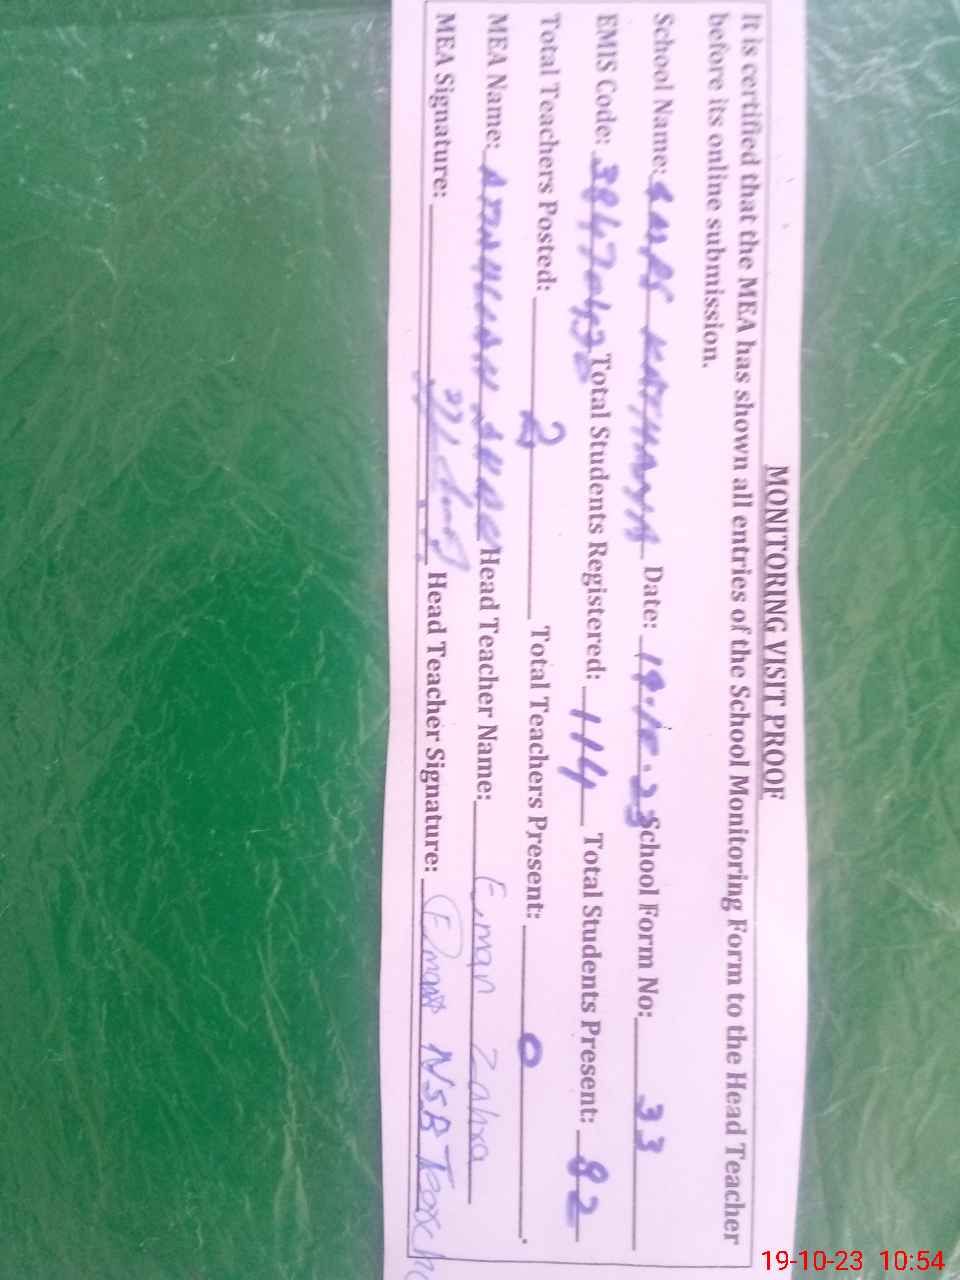 MONITORING VISIT PROOF
It is certified that the MEA has shown all entries of the School Monitoring Form to the Head Teacher
before its online submission.
School Name: GMPS KATHANYA Date: 19.10.23 School Form No: 33
EMIS Code: Total Students Registered: 114 Total Students Present: 82
Total Teachers Posted: 2 Total Teachers Present: 0
MEA Name: Head Teacher Name: Eman Zahra
MEA Signature: Head Teacher Signature: Eman NSB
19-10-23 10:54